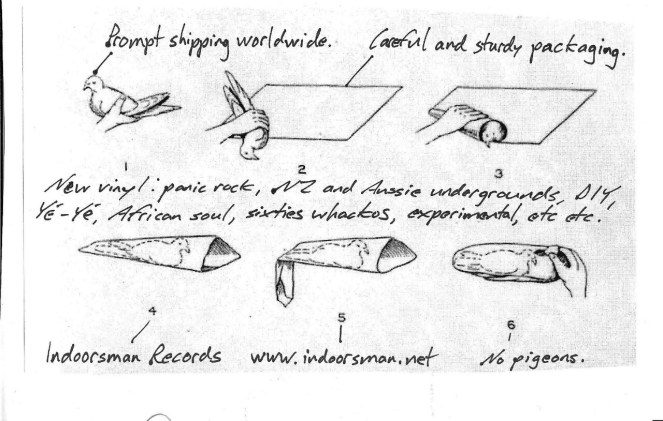 Prompt shipping worldwide. Careful and sturdy packaging.
1 2 3
New vinyl: panic rock, NZ and Aussie undergrounds, DIY,
Yé-Yé, African soul, sixties whackos, experimental, etc etc.
4 5 6
Indoorsman Records www.indoorsman.net No pigeons.